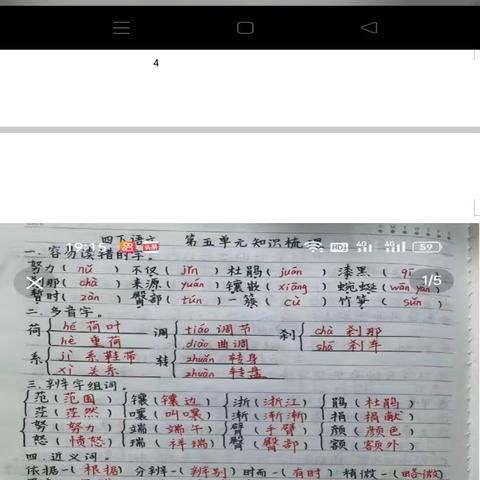 4
四下语文 第五单元知识梳理
19:15 HD 4G 4G 59
一.容易读错的字。
努力(nǔ) 不仅(jǐn) 杜鹃(juān) 漆黑(qī
1/5
刹那(chà) 来源(yuán) 镶嵌(xiāng) 蜿蜒(wān yán)
暂时(zàn) 臀部(tún) 一簇(cù) 竹笋(sǔn)
二.多音字。
荷 hé 荷叶 调 tiáo 调节 刹 chà 刹那
hè 重荷 diào 曲调 shā 刹车
系 jì 系鞋带 转 zhuǎn 转身
xì 关系 zhuàn 转盘
三.辨字组词。
范(范围) 镶(镶边) 浙(浙江) 鹃(杜鹃)
茫(茫然) 嚷(叫嚷) 渐(渐渐) 捐(捐献)
努(努力) 端(端午) 臂(手臂) 颜(颜色)
怒(愤怒) 瑞(祥瑞) 臀(臀部) 额(额外)
四.近义词。
依据-(根据) 分辨-(辨别) 时而-(有时) 稍微-(略微)